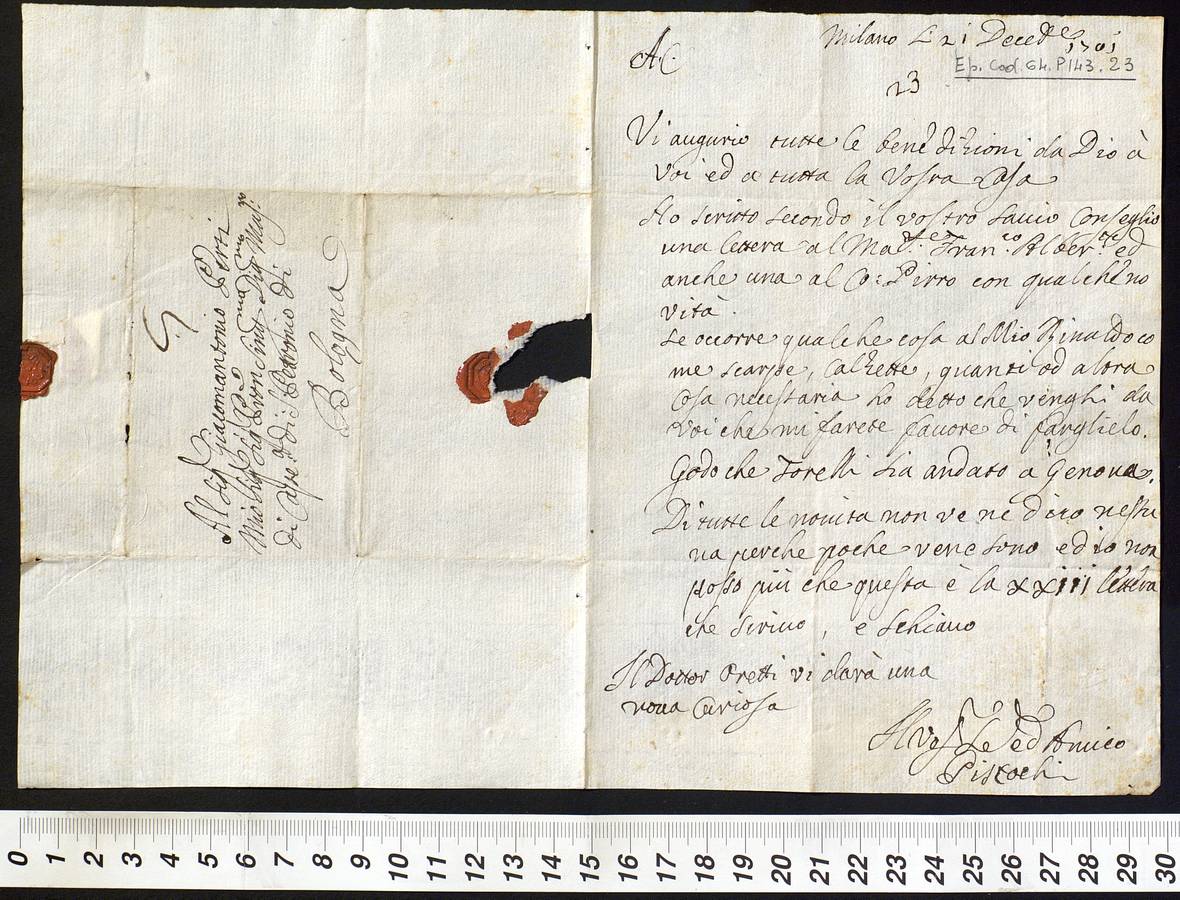 A. C.
Milano Li 21 Decebre
1701
Ep. Cod. 64. P143. 23
23
Vi augurio tutte le bene dizioni da Dio à
Voi ed a tutta la Vostra Casa
Ho scritto secondo il vostro savio Conseglio
una lettera al Franco. Alber. ed
anche una al Co: Pirro con qualche no
vità.
se occorre qualche cosa al Mio Rinaldo co
me scarpe, Calzette, quanti od altra
Cosa necessaria ho detto che venghi da
Voi che mi farete favore di farglielo.
Godo che Torelli sia andato a Genova.
Di tutte le novita non ve ne dico nessu
na perche poche vene sono ed io non
posso più che questa è la XXIII lettera
che scrivo, e schiavo
Il Dottor Oretti vi darà una
nova Curiosa
Il Vos ed Amico
Pistochi
Al Sig. Giacomantonio Perti
di Cape. di S. Petronio di
Bologna